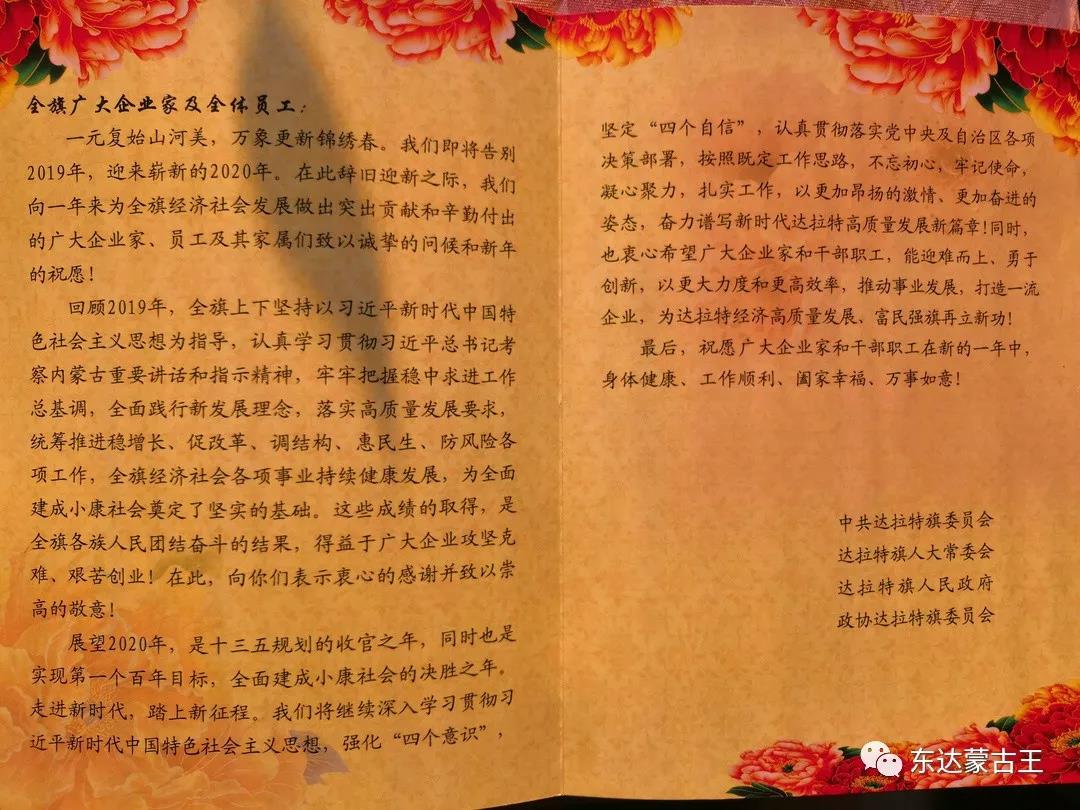 全旗广大企业家及全体员工：
一元复始山河美，万象更新锦绣春。我们即将告别
2019年，迎来崭新的2020年。在此辞旧迎新之际，我们
向一年来为全旗经济社会发展做出突出贡献和辛勤付出
的广大企业家、员工及其家属们致以诚挚的问候和新年
的祝愿！
回顾2019年，全旗上下坚持以习近平新时代中国特
色社会主义思想为指导，认真学习贯彻习近平总书记考
察内蒙古重要讲话和指示精神，牢牢把握稳中求进工作
总基调，全面践行新发展理念，落实高质量发展要求，
统筹推进稳增长、促改革、调结构、惠民生、防风险各
项工作，全旗经济社会各项事业持续健康发展，为全面
建成小康社会奠定了坚实的基础。这些成绩的取得，是
全旗各族人民团结奋斗的结果，得益于广大企业攻坚克
难、艰苦创业！在此，向你们表示衷心的感谢并致以崇
高的敬意！
展望2020年，是十三五规划的收官之年，同时也是
实现第一个百年目标，全面建成小康社会的决胜之年。
走进新时代，踏上新征程。我们将继续深入学习贯彻习
近平新时代中国特色社会主义思想，强化“四个意识”，
坚定“四个自信”，认真贯彻落实党中央及自治区各项
决策部署，按照既定工作思路，不忘初心，牢记使命，
凝心聚力，扎实工作，以更加昂扬的激情、更加奋进的
姿态，奋力谱写新时代达拉特高质量发展新篇章！同时，
也衷心希望广大企业家和干部职工，能迎难而上、勇于
创新，以更大力度和更高效率，推动事业发展，打造一流
企业，为达拉特经济高质量发展、富民强旗再立新功！
最后，祝愿广大企业家和干部职工在新的一年中，
身体健康、工作顺利、阖家幸福、万事如意！
中共达拉特旗委员会
达拉特旗人大常委会
达拉特旗人民政府
政协达拉特旗委员会
东达蒙古王